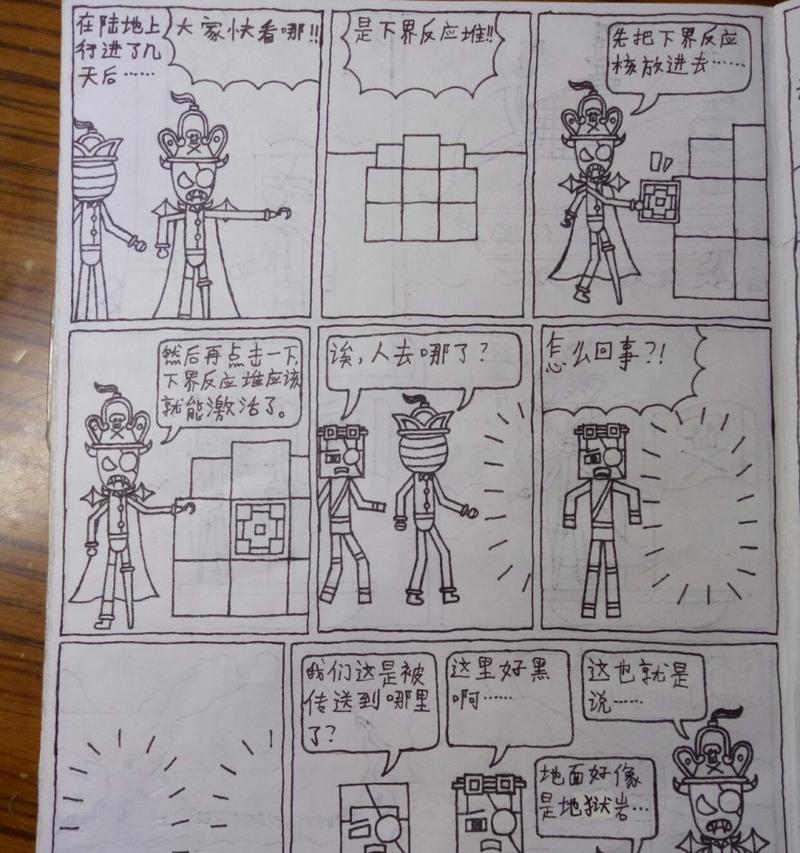 在陆地上
行进了几
天后……
大家快看哪!!
是下界反应堆!!
先把下界反应
核放进去……
然后再点击一下,
下界反应堆应该
就能激活了。
诶,人去哪了?
怎么回事?!
我们这是被
传送到哪里
了?
这里好黑
啊……
这也就是
说……
地面好像
是地狱岩…